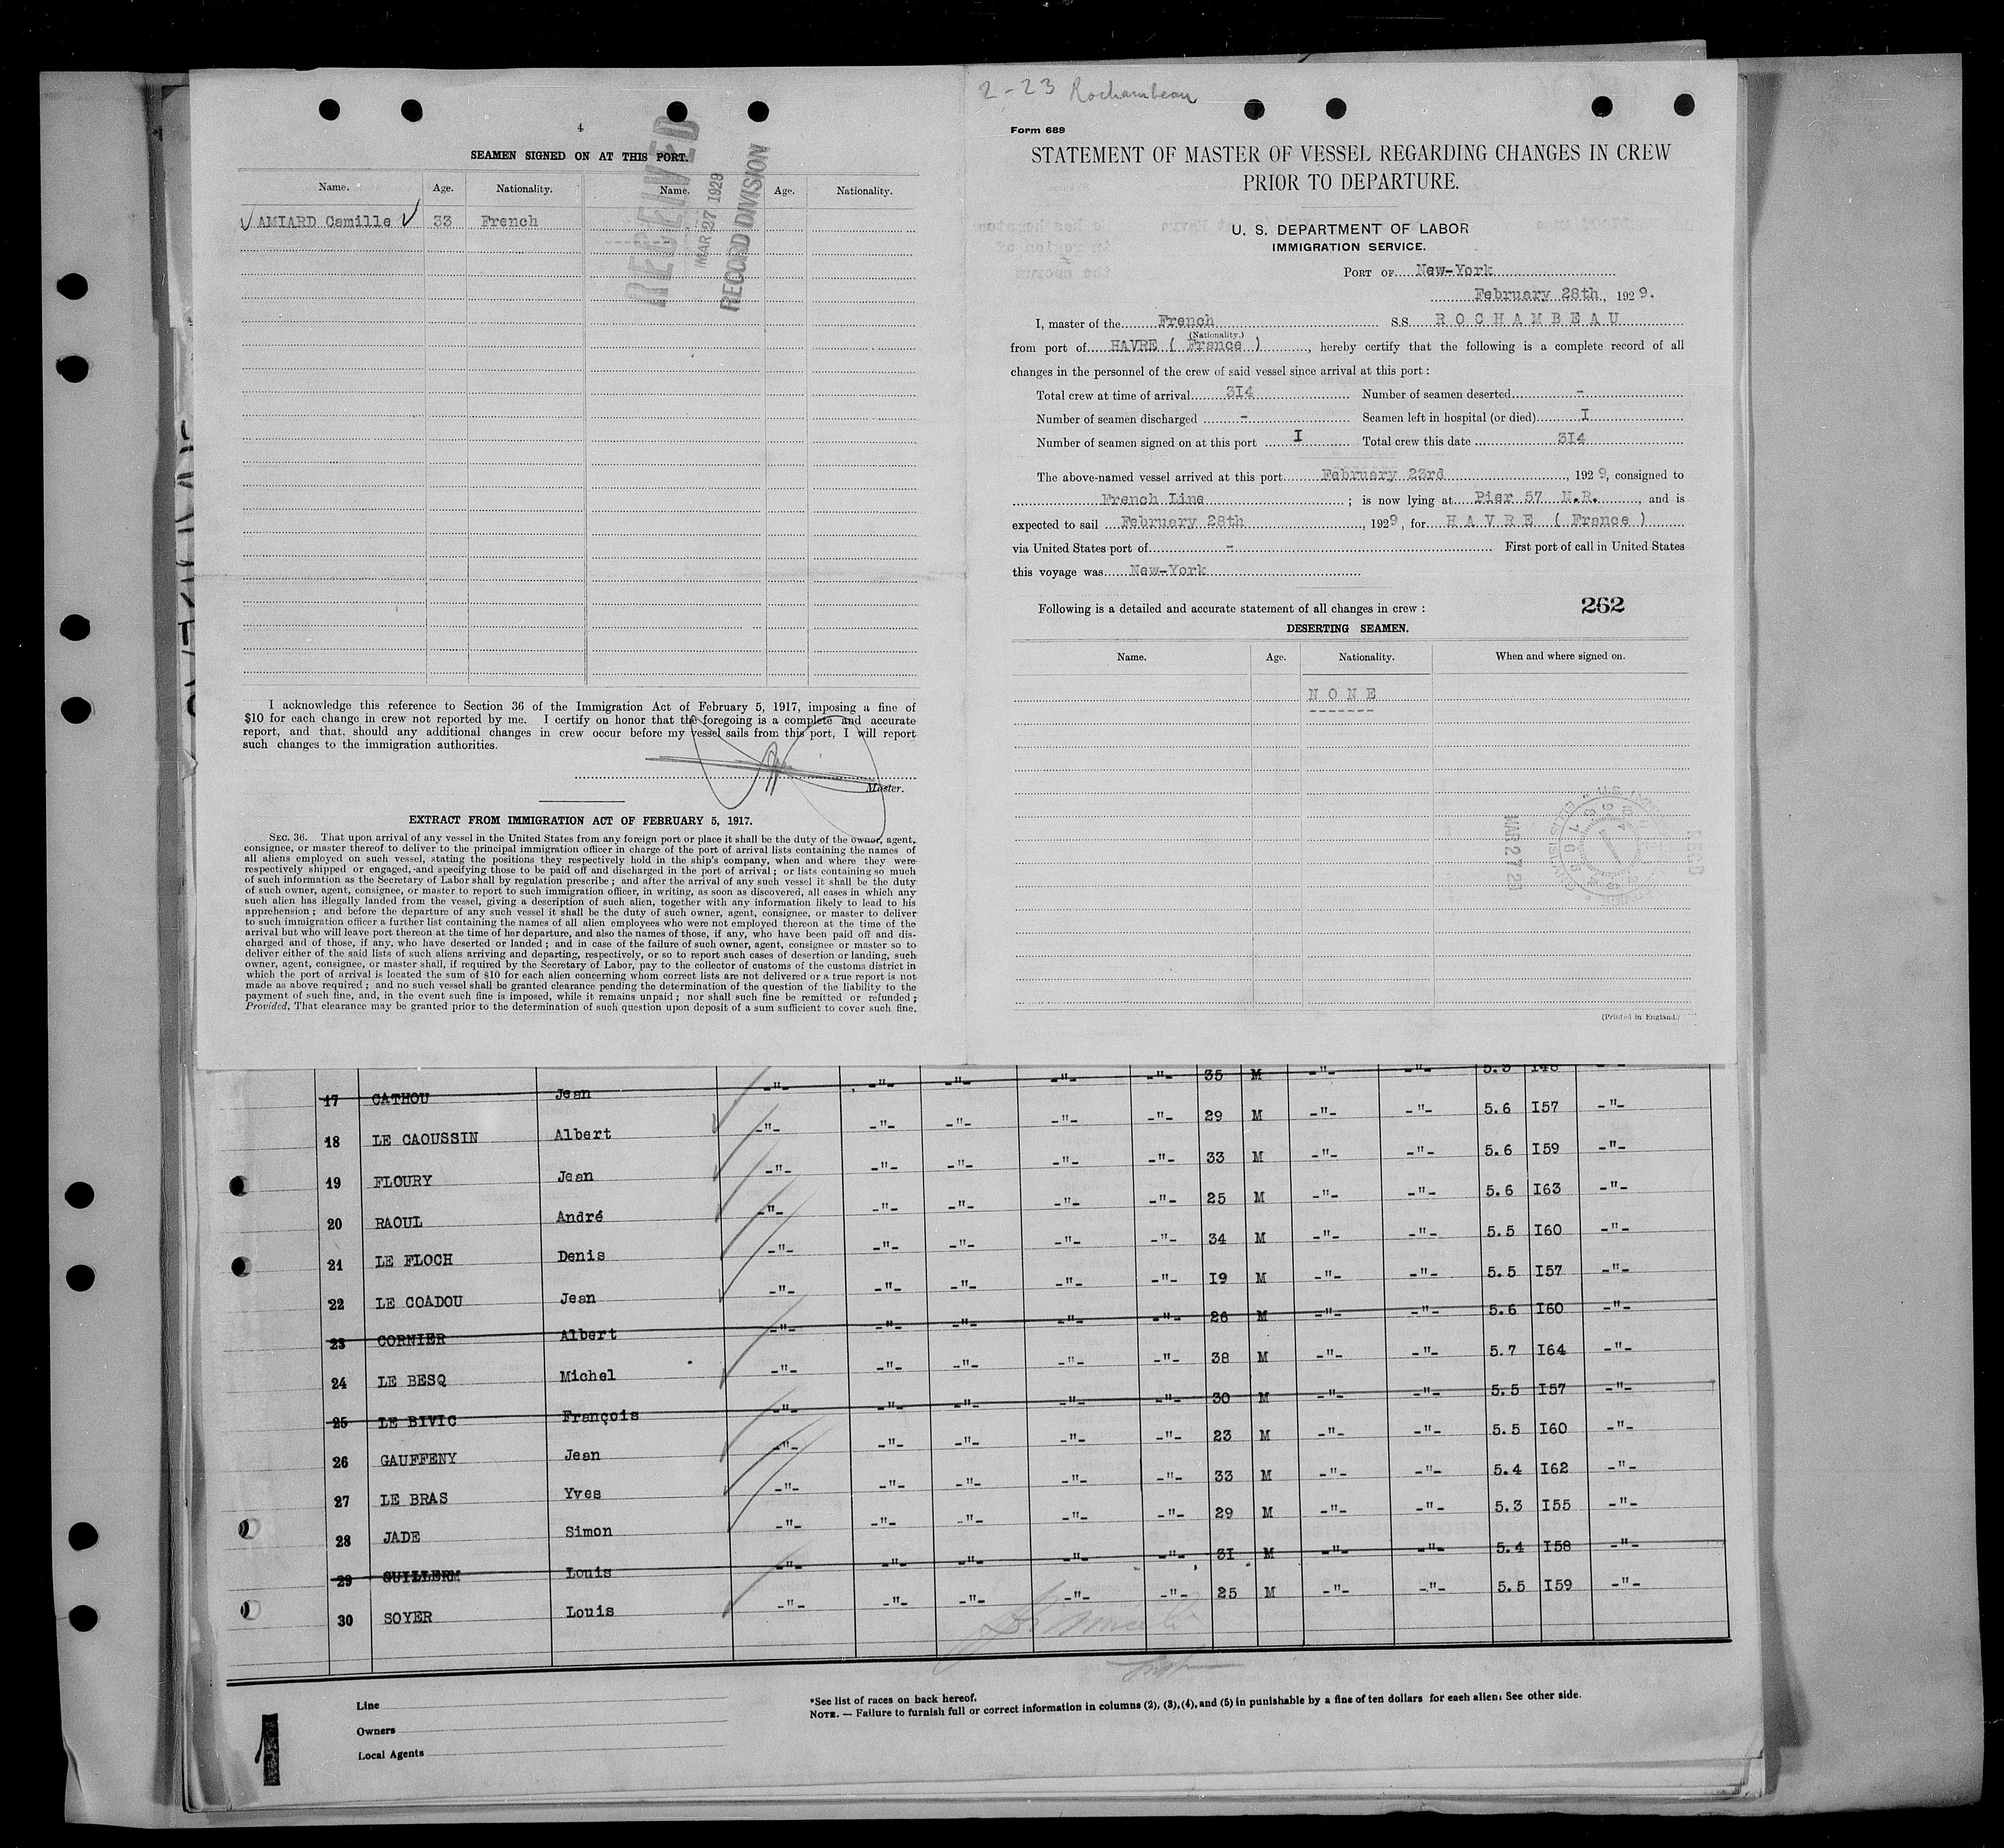 4
SEAMEN SIGNED ON AT THIS PORT.
Name. Age. Nationality. Name. Age. Nationality.
AMIARD Camille 33 French
RECEIVED
MAR 27 1929
RECORD DIVISION
I acknowledge this reference to Section 36 of the Immigration Act of February 5, 1917, imposing a fine of
$10 for each change in crew not reported by me. I certify on honor that the foregoing is a complete and accurate
report, and that, should any additional changes in crew occur before my vessel sails from this port, I will report
such changes to the immigration authorities.
Master.
EXTRACT FROM IMMIGRATION ACT OF FEBRUARY 5, 1917.
SEC. 36. That upon arrival of any vessel in the United States from any foreign port or place it shall be the duty of the owner, agent,
consignee, or master thereof to deliver to the principal immigration officer in charge of the port of arrival lists containing the names of
all aliens employed on such vessel, stating the positions they respectively hold in the ship's company, when and where they were
respectively shipped or engaged, and specifying those to be paid off and discharged in the port of arrival; or lists containing so much
of such information as the Secretary of Labor shall by regulation prescribe; and after the arrival of any such vessel it shall be the duty
of such owner, agent, consignee, or master to report to such immigration officer, in writing, as soon as discovered, all cases in which any
such alien has illegally landed from the vessel, giving a description of such alien, together with any information likely to lead to his
apprehension; and before the departure of any such vessel it shall be the duty of such owner, agent, consignee, or master to deliver
to such immigration officer a further list containing the names of all alien employees who were not employed thereon at the time of the
arrival but who will leave port thereon at the time of her departure, and also the names of those, if any, who have been paid off and dis-
charged and of those, if any, who have deserted or landed; and in case of the failure of such owner, agent, consignee or master so to
deliver either of the said lists of such aliens arriving and departing, respectively, or so to report such cases of desertion or landing, such
owner, agent, consignee, or master shall, if required by the Secretary of Labor, pay to the collector of customs of the customs district in
which the port of arrival is located the sum of $10 for each alien concerning whom correct lists are not delivered or a true report is not
made as above required; and no such vessel shall be granted clearance pending the determination of the question of the liability to the
payment of such fine, and, in the event such fine is imposed, while it remains unpaid; nor shall such fine be remitted or refunded;
Provided, That clearance may be granted prior to the determination of such question upon deposit of a sum sufficient to cover such fine.
2-23 Rochambeau
Form 689
STATEMENT OF MASTER OF VESSEL REGARDING CHANGES IN CREW
PRIOR TO DEPARTURE.
U. S. DEPARTMENT OF LABOR
IMMIGRATION SERVICE.
PORT OF New-York
February 28th, 1929.
I, master of the French S.S. ROCHAMBEAU
(Nationality.)
from port of HAVRE ( France ), hereby certify that the following is a complete record of all
changes in the personnel of the crew of said vessel since arrival at this port:
Total crew at time of arrival 3I4 Number of seamen deserted -
Number of seamen discharged - Seamen left in hospital (or died) I
Number of seamen signed on at this port I Total crew this date 3I4
The above-named vessel arrived at this port February 23rd, 1929, consigned to
French Line; is now lying at Pier 57 N.R., and is
expected to sail February 28th, 1929, for HAVRE ( France )
via United States port of - First port of call in United States
this voyage was New-York
Following is a detailed and accurate statement of all changes in crew: 262
DESERTING SEAMEN.
Name. Age. Nationality. When and where signed on.
NONE
MAR 27 29
(Printed in England.)
17 CATHOU Jean -"- -"- -"- -"- -"- 35 M -"- -"- 5.5 I48 -"-
18 LE CAOUSSIN Albert -"- -"- -"- -"- -"- 29 M -"- -"- 5.6 I57 -"-
19 FLOURY Jean -"- -"- -"- -"- -"- 33 M -"- -"- 5.6 I59 -"-
20 RAOUL André -"- -"- -"- -"- -"- 25 M -"- -"- 5.6 I63 -"-
21 LE FLOCH Denis -"- -"- -"- -"- -"- 34 M -"- -"- 5.5 I60 -"-
22 LE COADOU Jean -"- -"- -"- -"- -"- I9 M -"- -"- 5.5 I57 -"-
23 CORNIER Albert -"- -"- -"- -"- -"- 26 M -"- -"- 5.6 I60 -"-
24 LE BESQ Michel -"- -"- -"- -"- -"- 38 M -"- -"- 5.7 I64 -"-
25 LE BIVIC François -"- -"- -"- -"- -"- 30 M -"- -"- 5.5 I57 -"-
26 GAUFFENY Jean -"- -"- -"- -"- -"- 23 M -"- -"- 5.5 I60 -"-
27 LE BRAS Yves -"- -"- -"- -"- -"- 33 M -"- -"- 5.4 I62 -"-
28 JADE Simon -"- -"- -"- -"- -"- 29 M -"- -"- 5.3 I55 -"-
29 GUILLERM Louis -"- -"- -"- -"- -"- 31 M -"- -"- 5.4 I58 -"-
30 SOYER Louis -"- -"- -"- -"- -"- 25 M -"- -"- 5.5 I59 -"-
Line
Owners
Local Agents
*See list of races on back hereof.
NOTE. — Failure to furnish full or correct information in columns (2), (3), (4), and (5) in punishable by a fine of ten dollars for each alien. See other side.
1